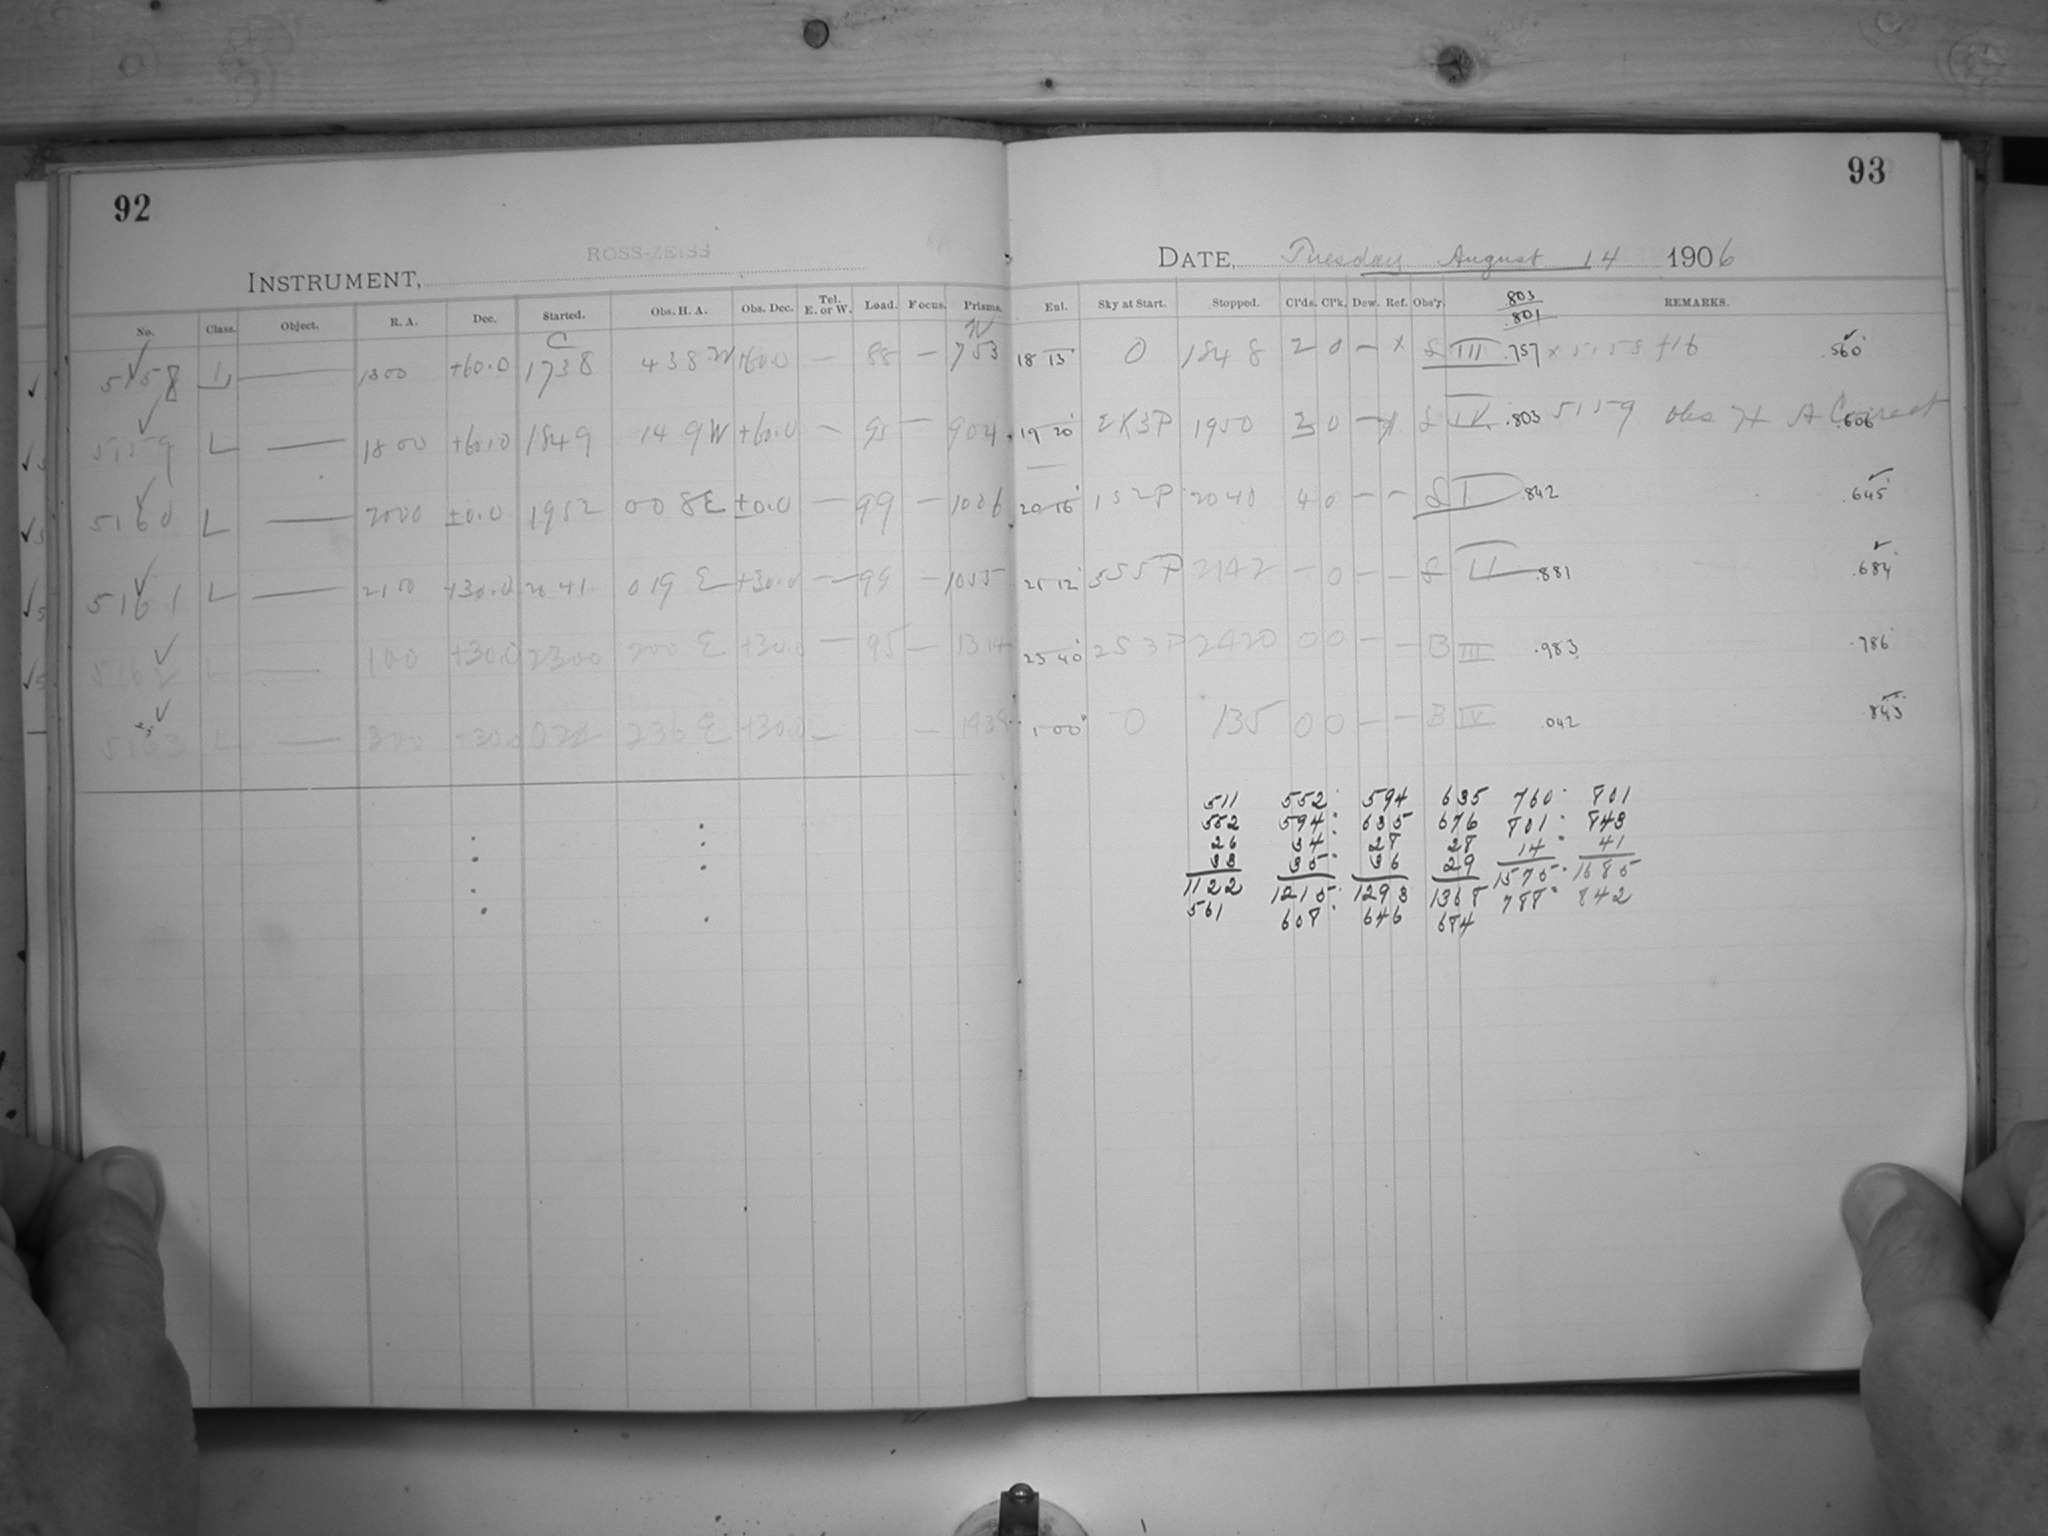 92
ROSS-ZEISS
INSTRUMENT,
No. Class. Object. R. A. Dec. Started. Obs. H. A. Obs. Dec. Tel. E. or W. Load. Focus. Prisms.
5158 L — 1800 +60.0 1738 438 W +60.0 — 88 — 753
5159 L — 1800 +60.0 1849 149 W +60.0 — 95 — 904
5160 L — 2000 ±0.0 1952 008 E ±0.0 — 99 — 1006
5161 L — 2100 +30.0 2041 019 E +30.0 — 99 — 1055
5162 L — 100 +30.0 2300 200 E +30.0 — 95 — 1314
5163 L — 300 +30.0 236 E +30.0 — — 1438
93
DATE, Tuesday August 14 1906
Enl. Sky at Start. Stopped. Cl'ds. Cl'k. Dew. Ref. Obs'r. .803 .801 REMARKS.
18 13 0 1848 2 0 — x S III .757 x 5158 +16 .560
19 20 2K3P 1950 3 0 — x S IV .803 5159 Obs H A Correct .606
20 16 152P 2040 4 0 — — S I .842 .645
21 12 555P 2142 — 0 — — S II .881 .684
23 40 253P 2420 0 0 — — B III .983 .786
1 00 0 135 0 0 — — B IV .042 .843
511 552 594 635 760 801
552 594 635 676 801 843
26 34 28 28 14 41
33 35 36 29
1122 1215 1293 1368 1575 1685
561 608 646 684 788 842